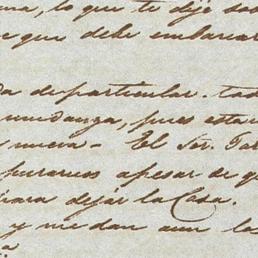 na, lo que te dije so
e que debe embarcar
da de particular. tod
mudanza, pues estam
nueva - El Sor. Tar
purarnos apesar de q
para dejár la Casa.
y me dan aun la
a